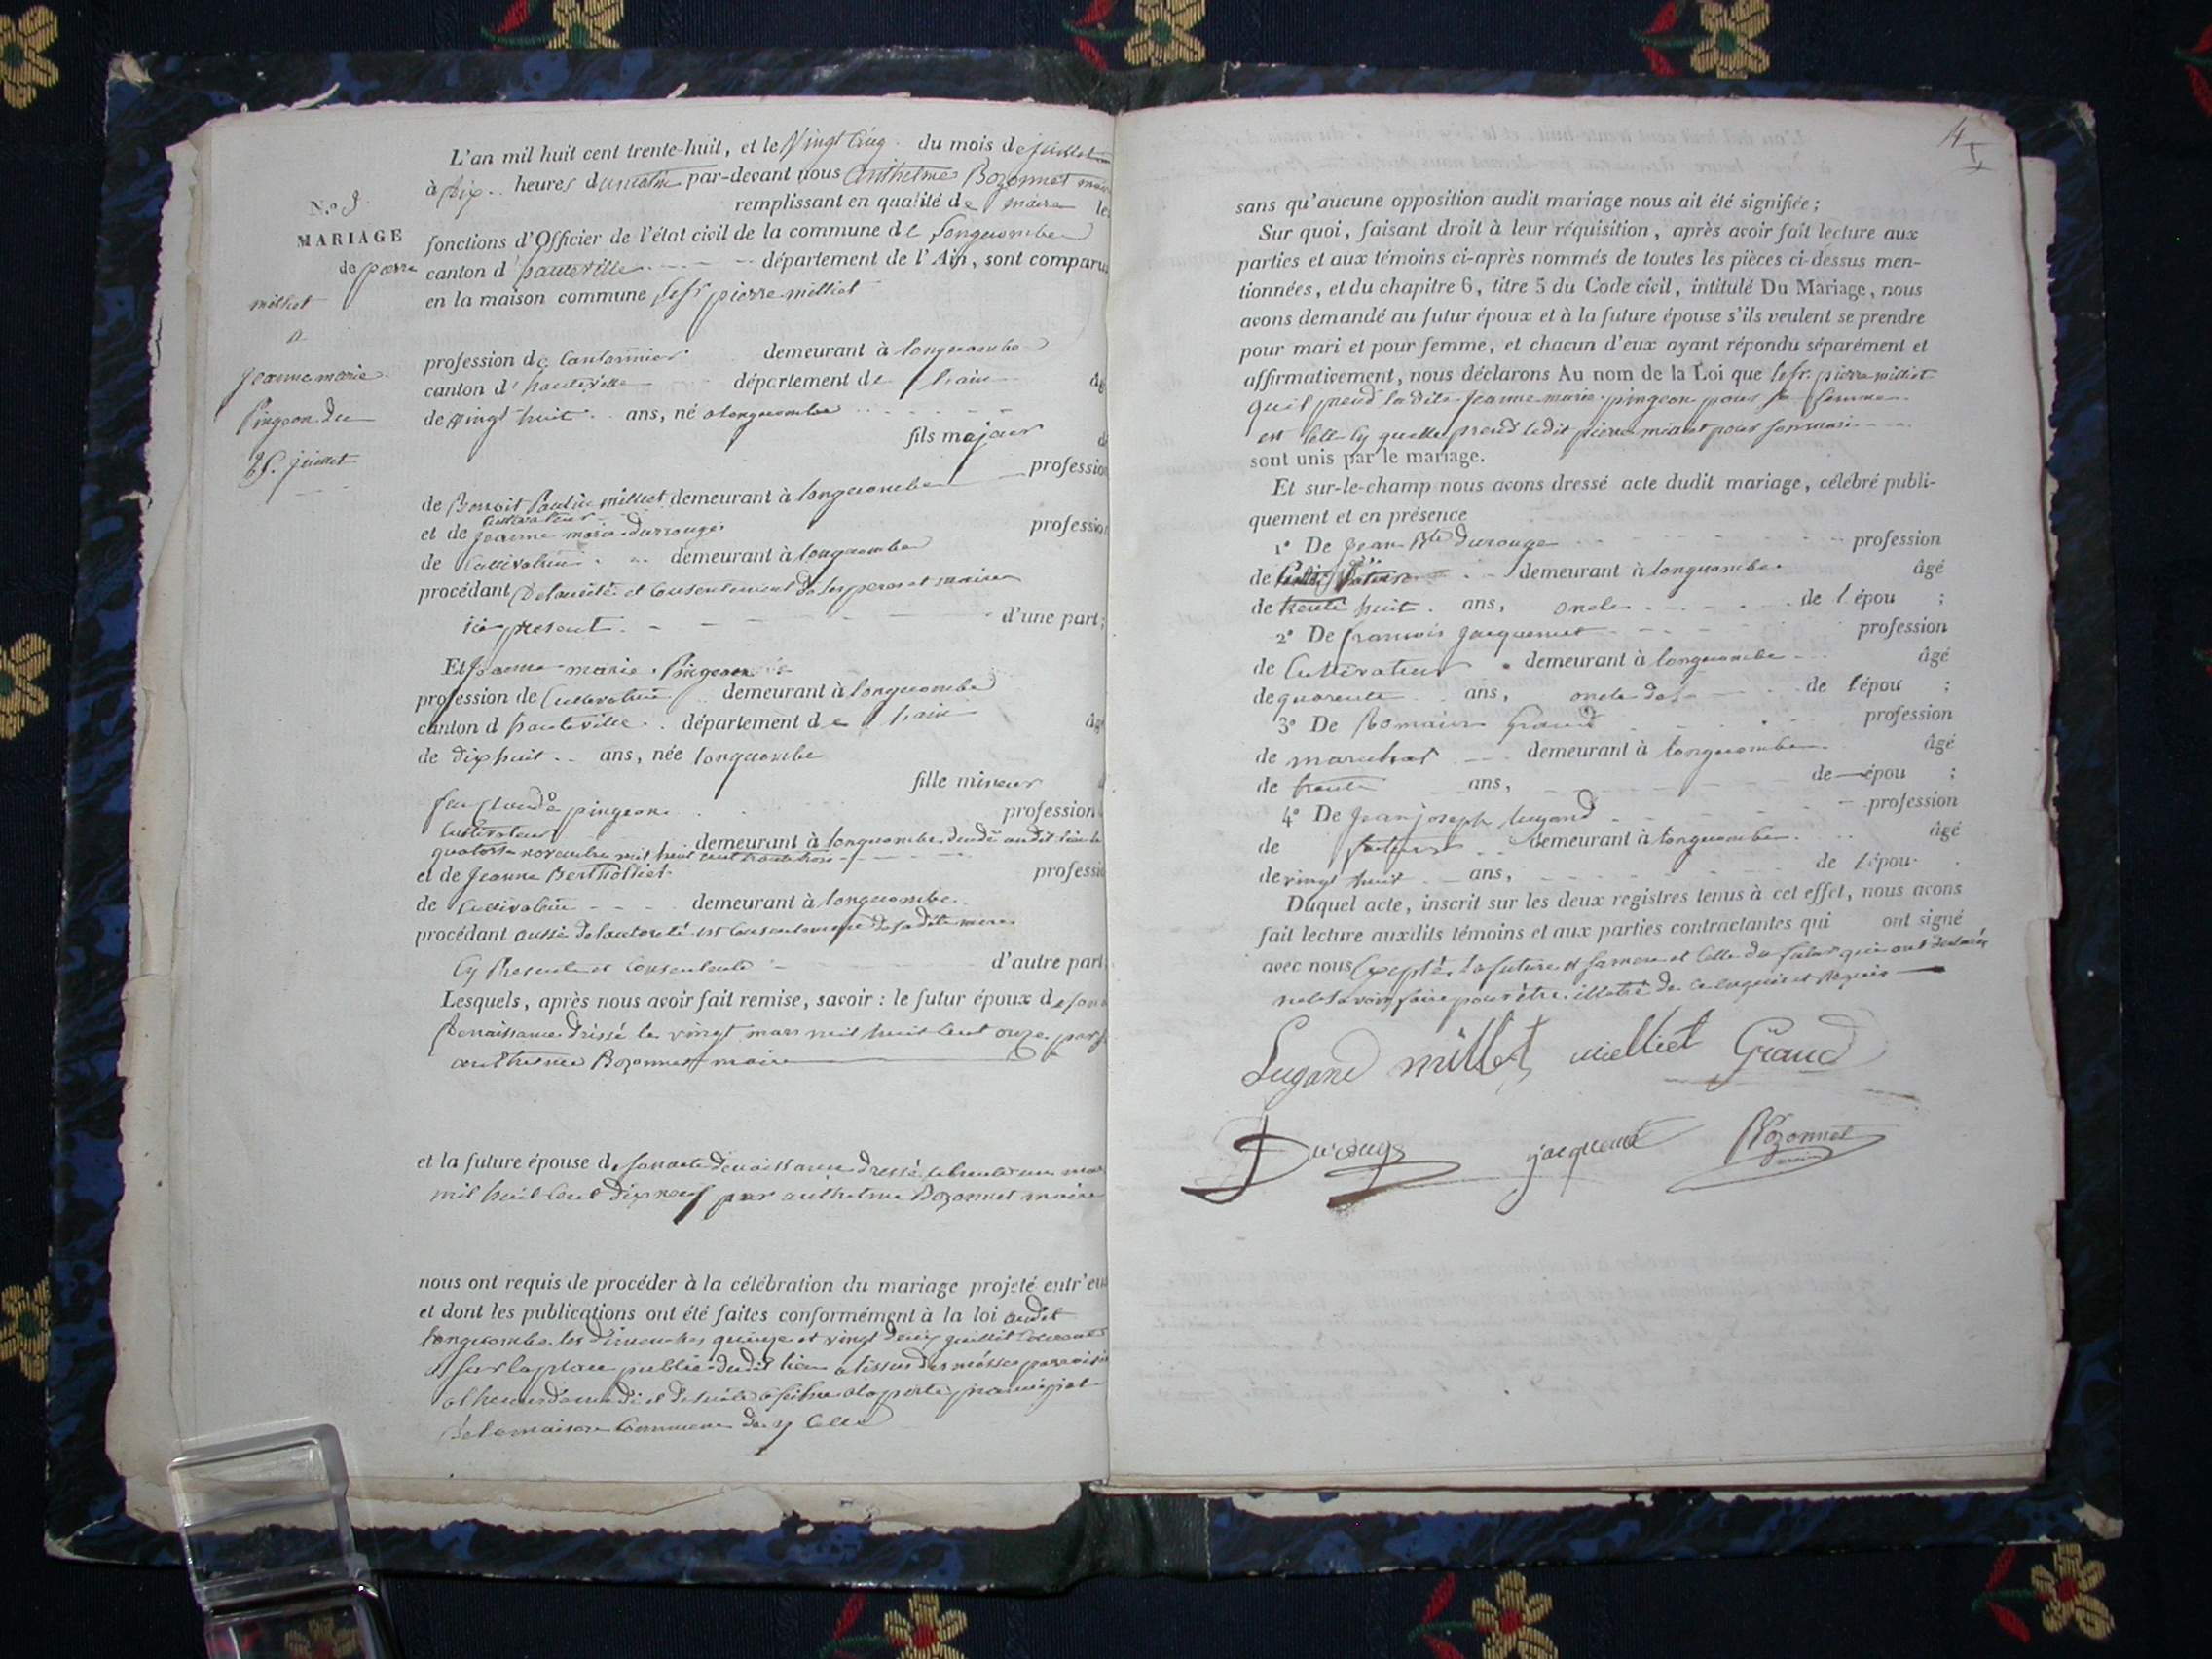 N.o 3
MARIAGE
de pierre
milliet
a
Jeanne marie
Pingeon du
25 juillet
L'an mil huit cent trente-huit, et le Vingt Cinq du mois de juillet
à dix heures du matin par-devant nous Anthelme Bozonnet maire
remplissant en qualité de maire les
fonctions d'Officier de l'état civil de la commune de Longecombe
canton d' hauteville département de l'Ain, sont comparu
en la maison commune le sr pierre milliet
profession de Cantonnier demeurant à longecombe
canton d' hauteville département de l'ain âg
de vingt huit ans, né a longecombe
fils majeur d
profession
de Benoit Paulin milliet demeurant à longecombe
cultivateur
et de jeanne marie durouge profession
de Cultivatrice demeurant à longecombe
procédant de l'autorité et consentement de ses peres et maire
ici present d'une part;
Et jeanne marie Pingeon
profession de Cultivatrice demeurant à longecombe
canton d hauteville département de l'ain âg
de dix huit ans, née longecombe
fille mineur d
feu Claude pingeon profession
Cultivateur demeurant à longecombe décédé audit lieu le
quatorze novembre mil huit cent trente trois
et de Jeanne Berthollier professi
de Cultivatrice demeurant à longecombe
procédant aussi de l'autorité et consentement de sa dite mere
Cy Presente et Consentente d'autre part
Lesquels, après nous avoir fait remise, savoir : le futur époux de son
de naissance dressé le vingt mars mil huit cent onze par
anthelme Bozonnet maire
et la future épouse de son acte de naissance dressé le trente un mai
mil huit cent dix neuf par anthelme Bozonnet maire
nous ont requis de procéder à la célébration du mariage projeté entr'eux
et dont les publications ont été faites conformément à la loi audit
longecombe les dimanches quinze et vingt deux juillet courant
sur la place public dudit lieu a l'issue des messes paroissi
a l'heure de midi et de suite afiché a la porte principial
de la maison Commune de y celle
4
sans qu'aucune opposition audit mariage nous ait été signifiée ;
Sur quoi, faisant droit à leur réquisition, après avoir fait lecture aux
parties et aux témoins ci-après nommés de toutes les pièces ci-dessus men-
tionnées, et du chapitre 6, titre 5 du Code civil, intitulé Du Mariage, nous
avons demandé au futur époux et à la future épouse s'ils veulent se prendre
pour mari et pour femme, et chacun d'eux ayant répondu séparément et
affirmativement, nous déclarons Au nom de la Loi que le sr. pierre milliet
qu'il prend la dite jeanne marie pingeon pour sa femme
et celle Cy quelle prend ledit pierre milliet pour son mari
sont unis par le mariage.
Et sur-le-champ nous avons dressé acte dudit mariage, célébré publi-
quement et en présence
1° De Jean Bte durouge profession
de demeurant à longecombe âgé
de trente huit ans, oncle de l'épou ;
2° De francois jacquemet profession
de Cultivateur demeurant à longecombe âgé
de quarente ans, oncle de l'épou ;
3° De Romain Giraud profession
de marechal demeurant à longecombe âgé
de trente ans, de épou ;
4° De jean joseph lugand profession
de demeurant à longecombe âgé
de vingt huit ans, de l'épou
Duquel acte, inscrit sur les deux registres tenus à cet effet, nous avons
fait lecture auxdits témoins et aux parties contractantes qui ont signé
avec nous Excepté la future et sa mere et celle du futur qui ont déclaré
ne le savoir faire pour être illetré de ce enquis et requis
Lugand millet milliet Giraud
Durouge jacquemet Bozonnet
maire